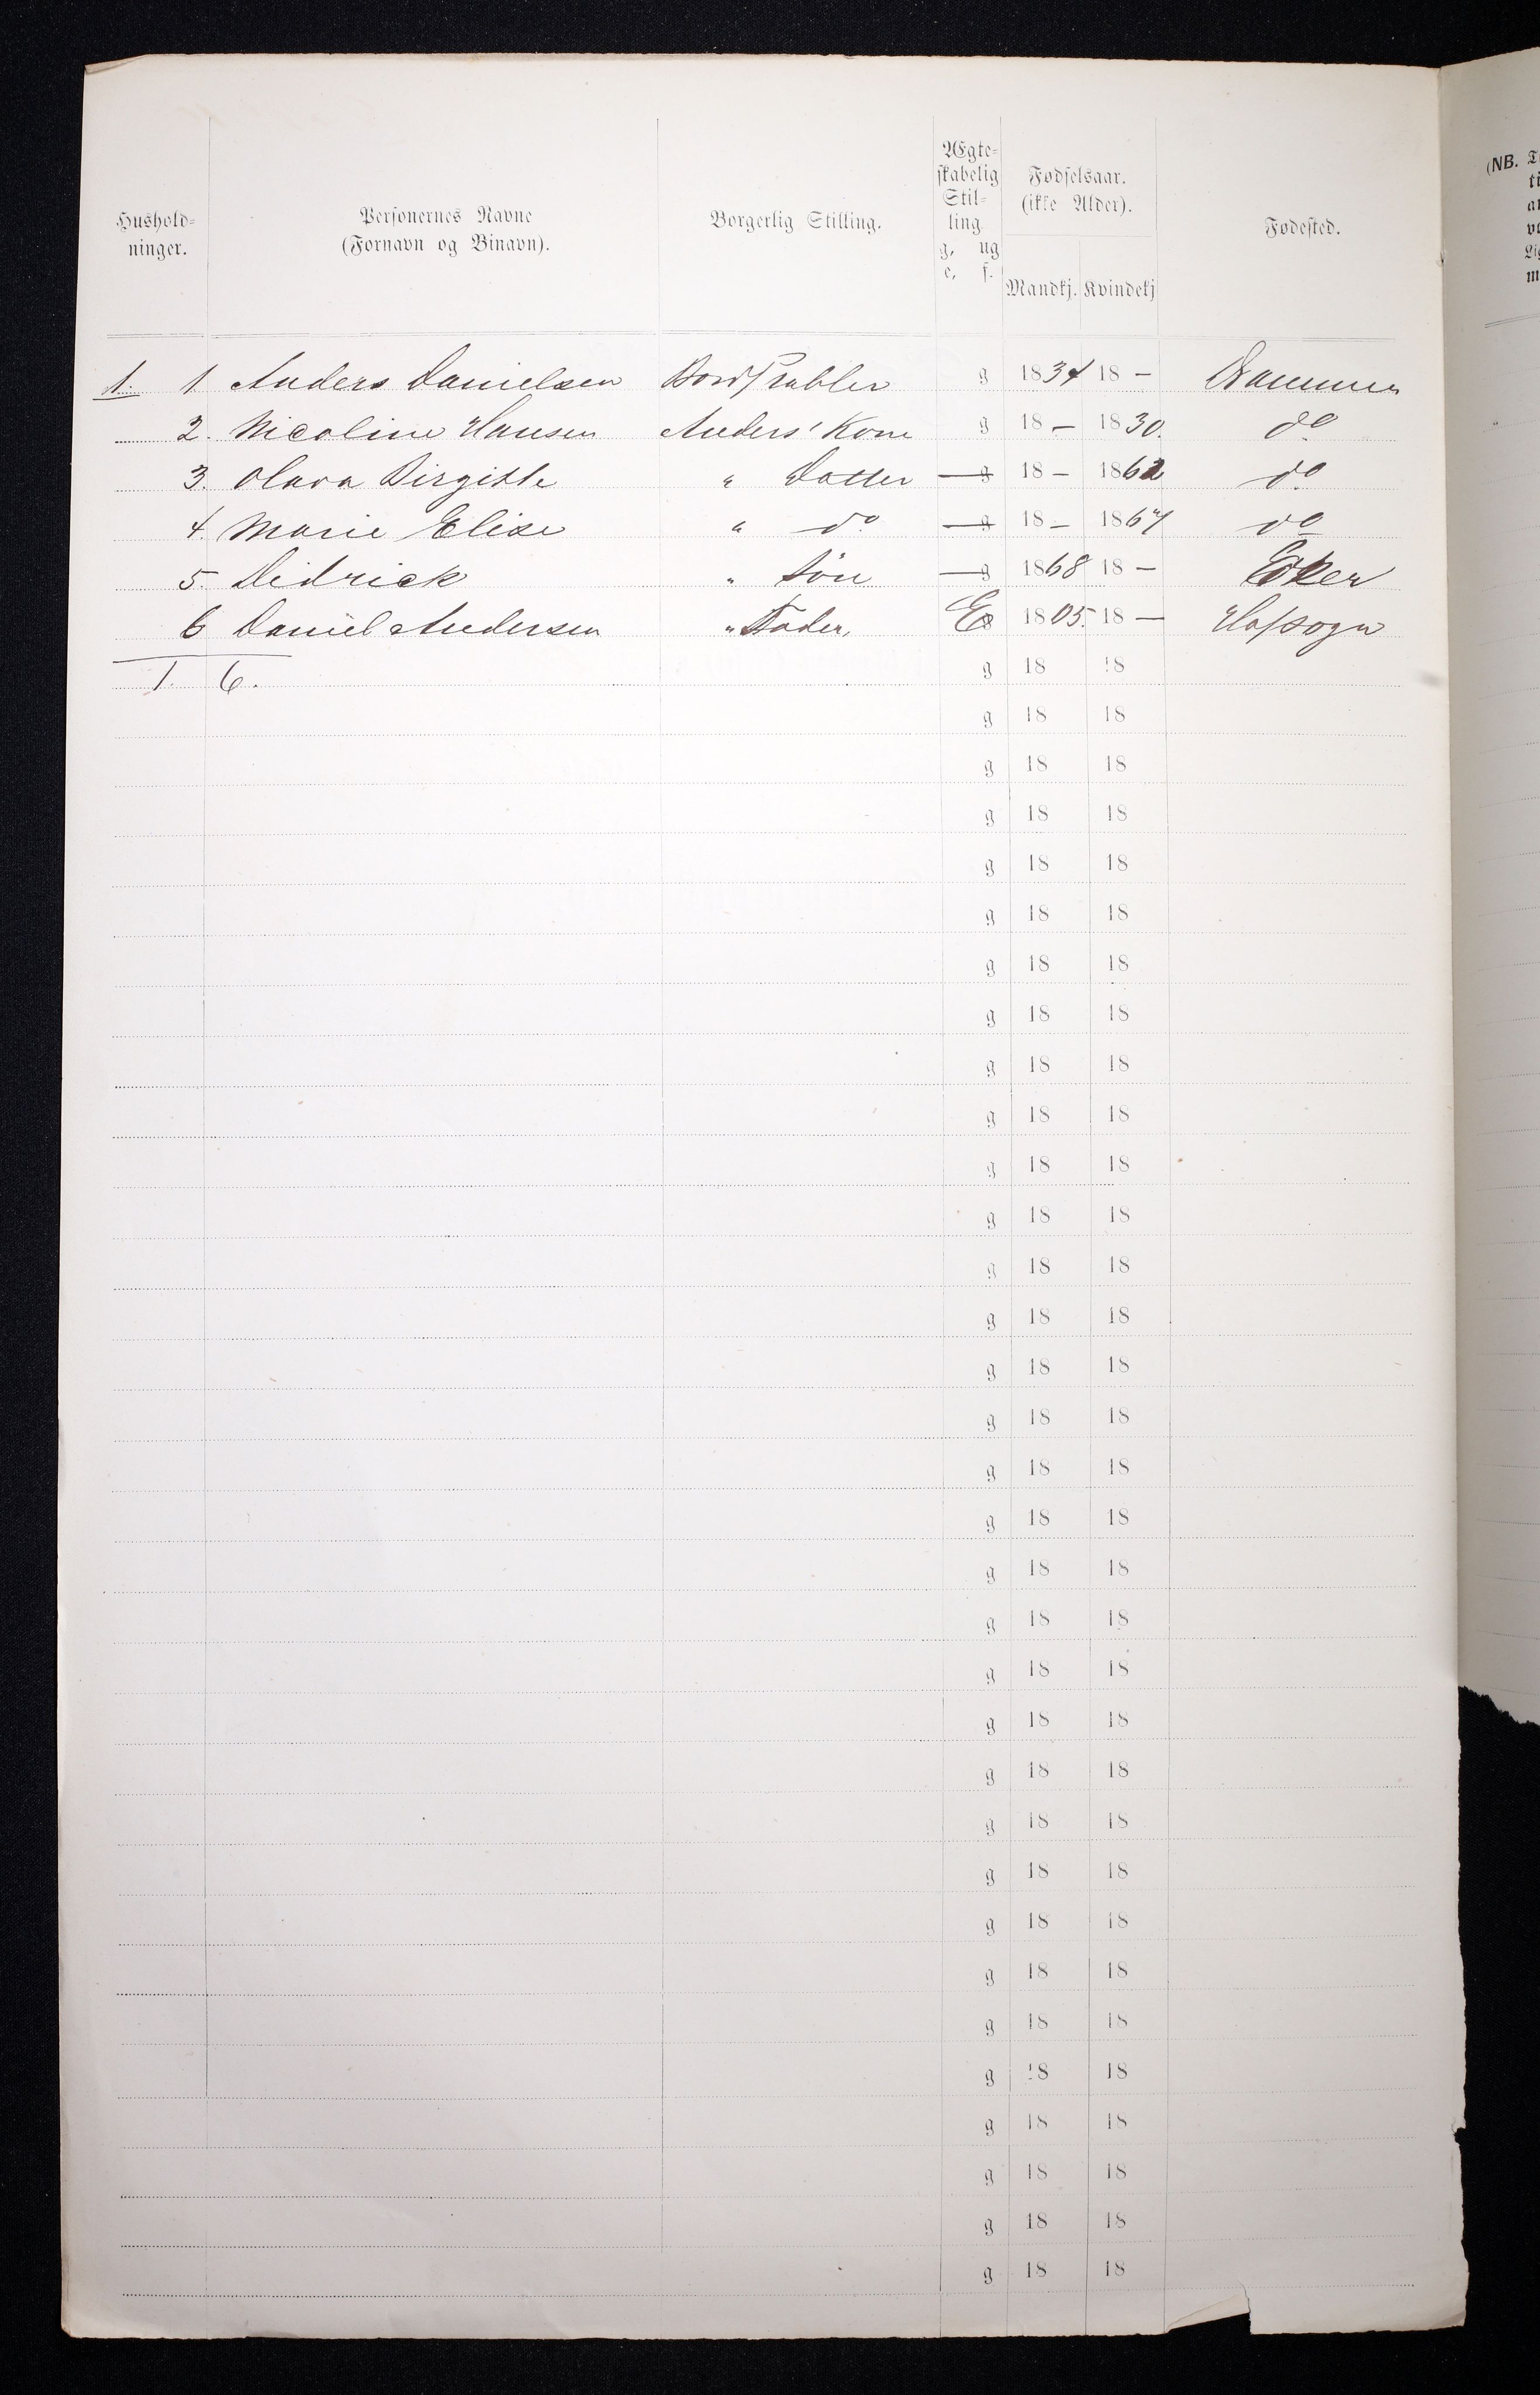 Hushold-
ninger.
Personernes Navne
(Fornavn og Binavn).
Borgerlig Stilling.
Ægte-
skabelig
Stil-
ling
g, ug
e, f.
Fødselsaar.
(ikke Alder).
Mandkj. Kvindekj
Fødested.
(NB.
1. 1 Anders Danielsen Bordstabler g 1834 18 — Drammen
2. Nicoline Hansen Anders' Kone g 18 — 1830. do
3. Olava Birgitte " Datter g 18 — 1862 do
4. Marie Elise " do g 18 — 1864 do
5. Didrick " Søn g 1868 18 — Eker
6 Daniel Andersen " Fader, E 1805. 18 — Hafsogn
1. 6. g 18 18
g 18 18
g 18 18
g 18 18
g 18 18
g 18 18
g 18 18
g 18 18
g 18 18
g 18 18
g 18 18
g 18 18
g 18 18
g 18 18
g 18 18
g 18 18
g 18 18
g 18 18
g 18 18
g 18 18
g 18 18
g 18 18
g 18 18
g 18 18
g 18 18
g 18 18
g 18 18
g 18 18
g 18 18
g 18 18
g 18 18
g 18 18
g 18 18